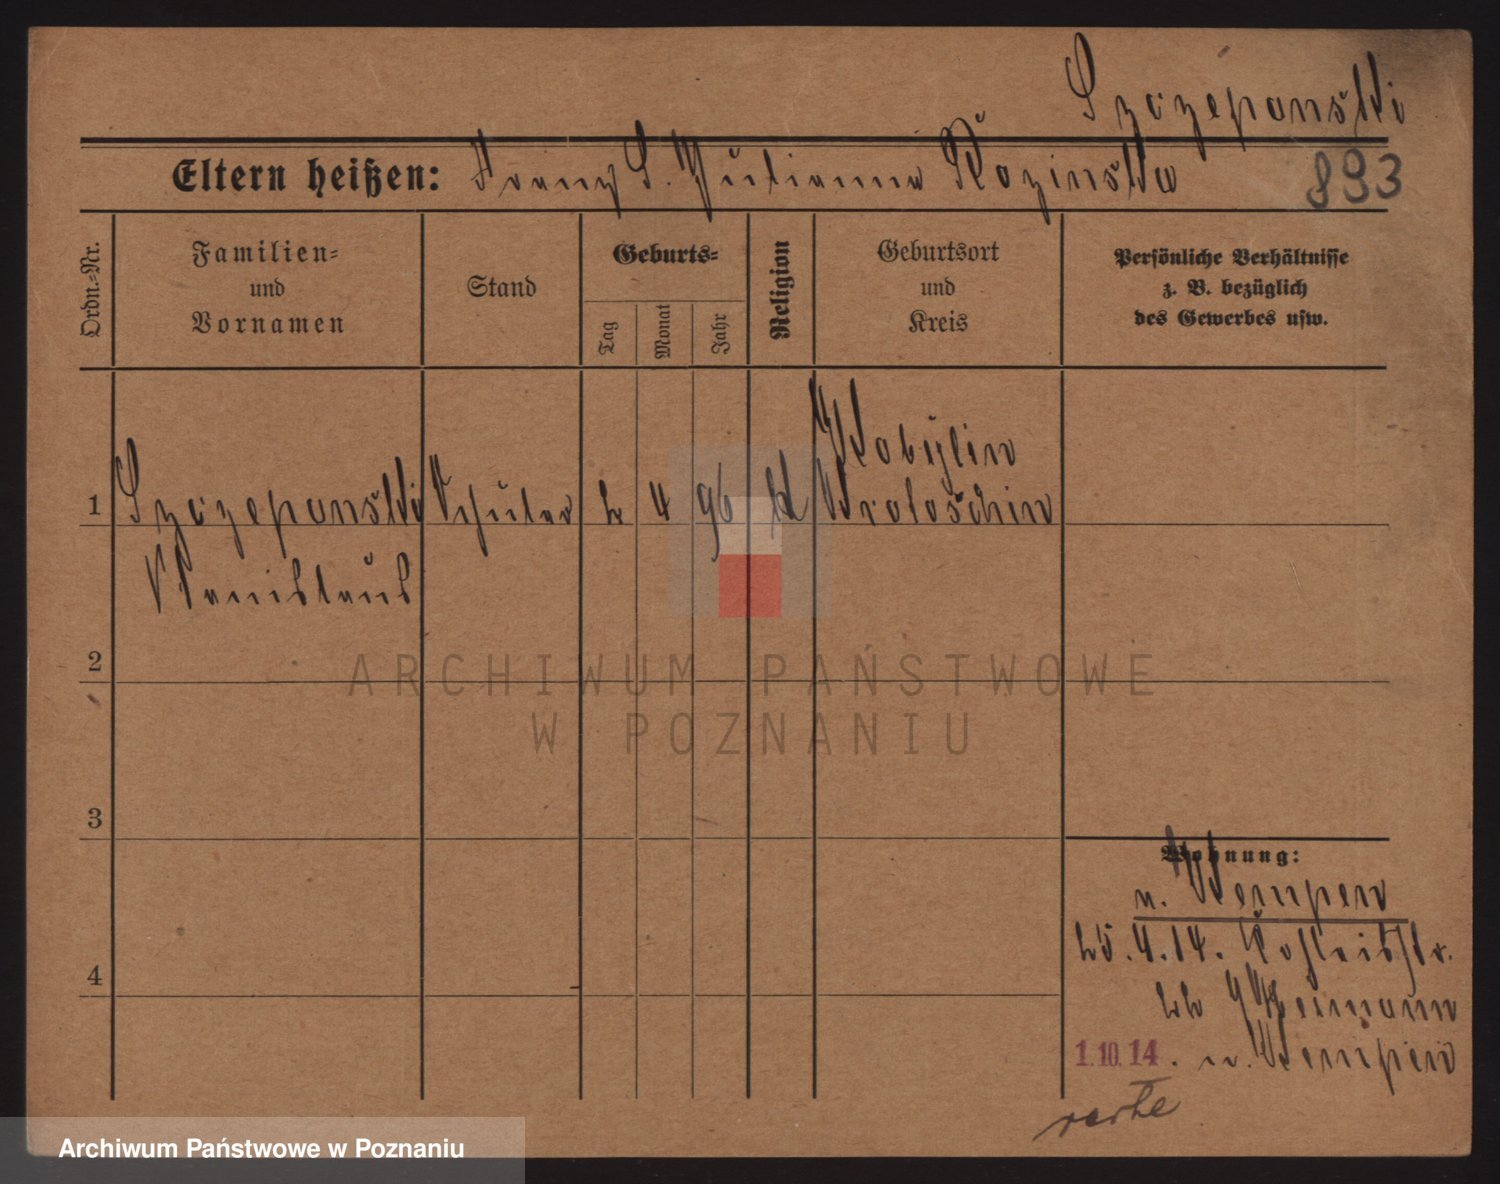 Szczepański
Eltern heißen: Franz S. Julianna Rozinska
893
Ordn.-Nr.
Familien-
und
Vornamen
Stand
Geburts-
Tag
Monat
Jahr
Religion
Geburtsort
und
Kreis
Persönliche Verhältnisse
z. B. bezüglich
des Gewerbes usw.
Kobylin
1 Szczepański Schüler 2 4 96 k Krotoschin
Stanislaus
2
ARCHIWUM PAŃSTWOWE
W POZNANIU
3
Wohnung:
n. Kempen
25.4.14.
22 Heimann
1.10.14. n. Kempen
4
Archiwum Państwowe w Poznaniu